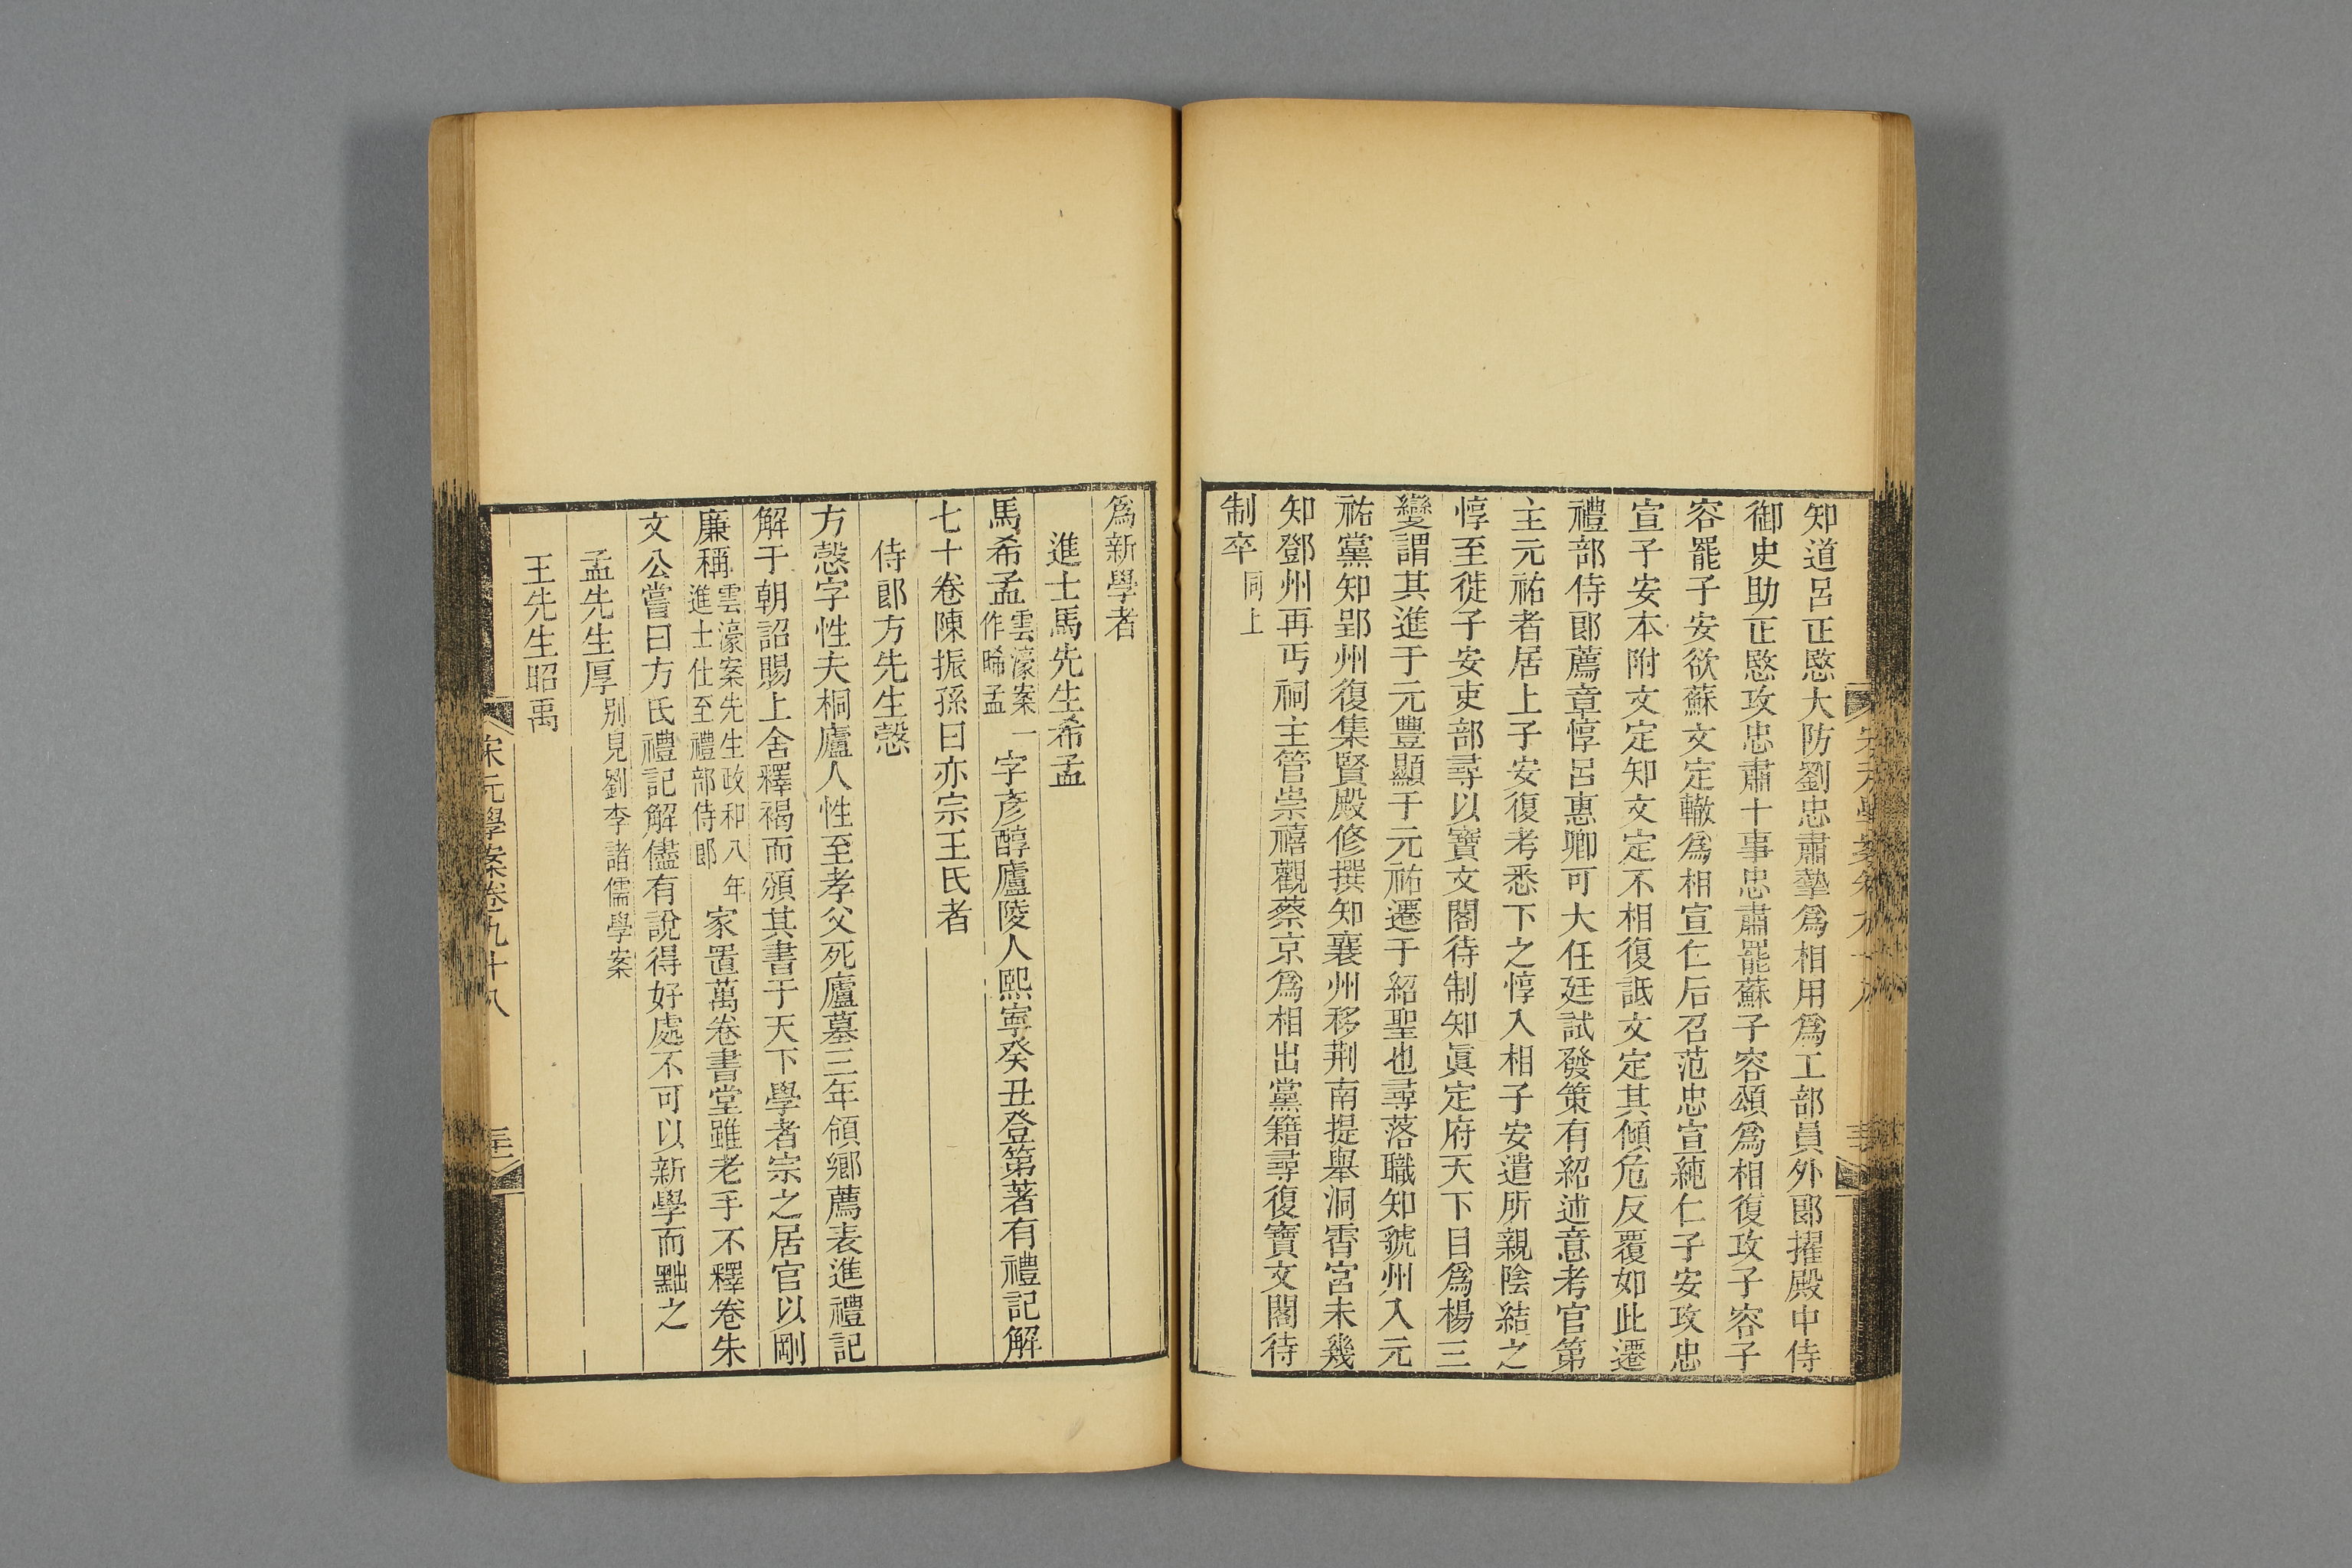 知道呂正愍大防劉忠肅摯爲相用爲工部員外郎擢殿中侍
御史助正愍攻忠肅十事忠肅罷蘇子容頌爲相復攻子容子
容罷子安欲蘇文定轍爲相宣仁后召范忠宣純仁子安攻忠
宣子安本附文定知文定不相復詆文定其傾危反覆如此遷
禮部侍郎薦章惇呂惠卿可大任廷試發策有紹述意考官第
主元祐者居上子安復考悉下之惇入相子安遣所親陰結之
惇至徙子安吏部尋以寶文閣待制知眞定府天下目爲楊三
變謂其進于元豐顯于元祐遷于紹聖也尋落職知虢州入元
祐黨知郢州復集賢殿修撰知襄州移荆南提舉洞霄宮未幾
知鄧州再丐祠主管崇禧觀蔡京爲相出黨籍尋復寶文閣待
制卒同上
爲新學者
進士馬先生希孟
馬希孟雲濠案一作晞孟字彥醇廬陵人熙寧癸丑登第著有禮記解
七十卷陳振孫曰亦宗王氏者
侍郎方先生慤
方慤字性夫桐廬人性至孝父死廬墓三年領鄉薦表進禮記
解于朝詔賜上舍釋褐而頒其書于天下學者宗之居官以剛
廉稱雲濠案先生政和八年進士仕至禮部侍郎家置萬卷書堂雖老手不釋卷朱
文公嘗曰方氏禮記解儘有說得好處不可以新學而黜之
孟先生厚別見劉李諸儒學案
王先生昭禹
宋元學案卷九十八